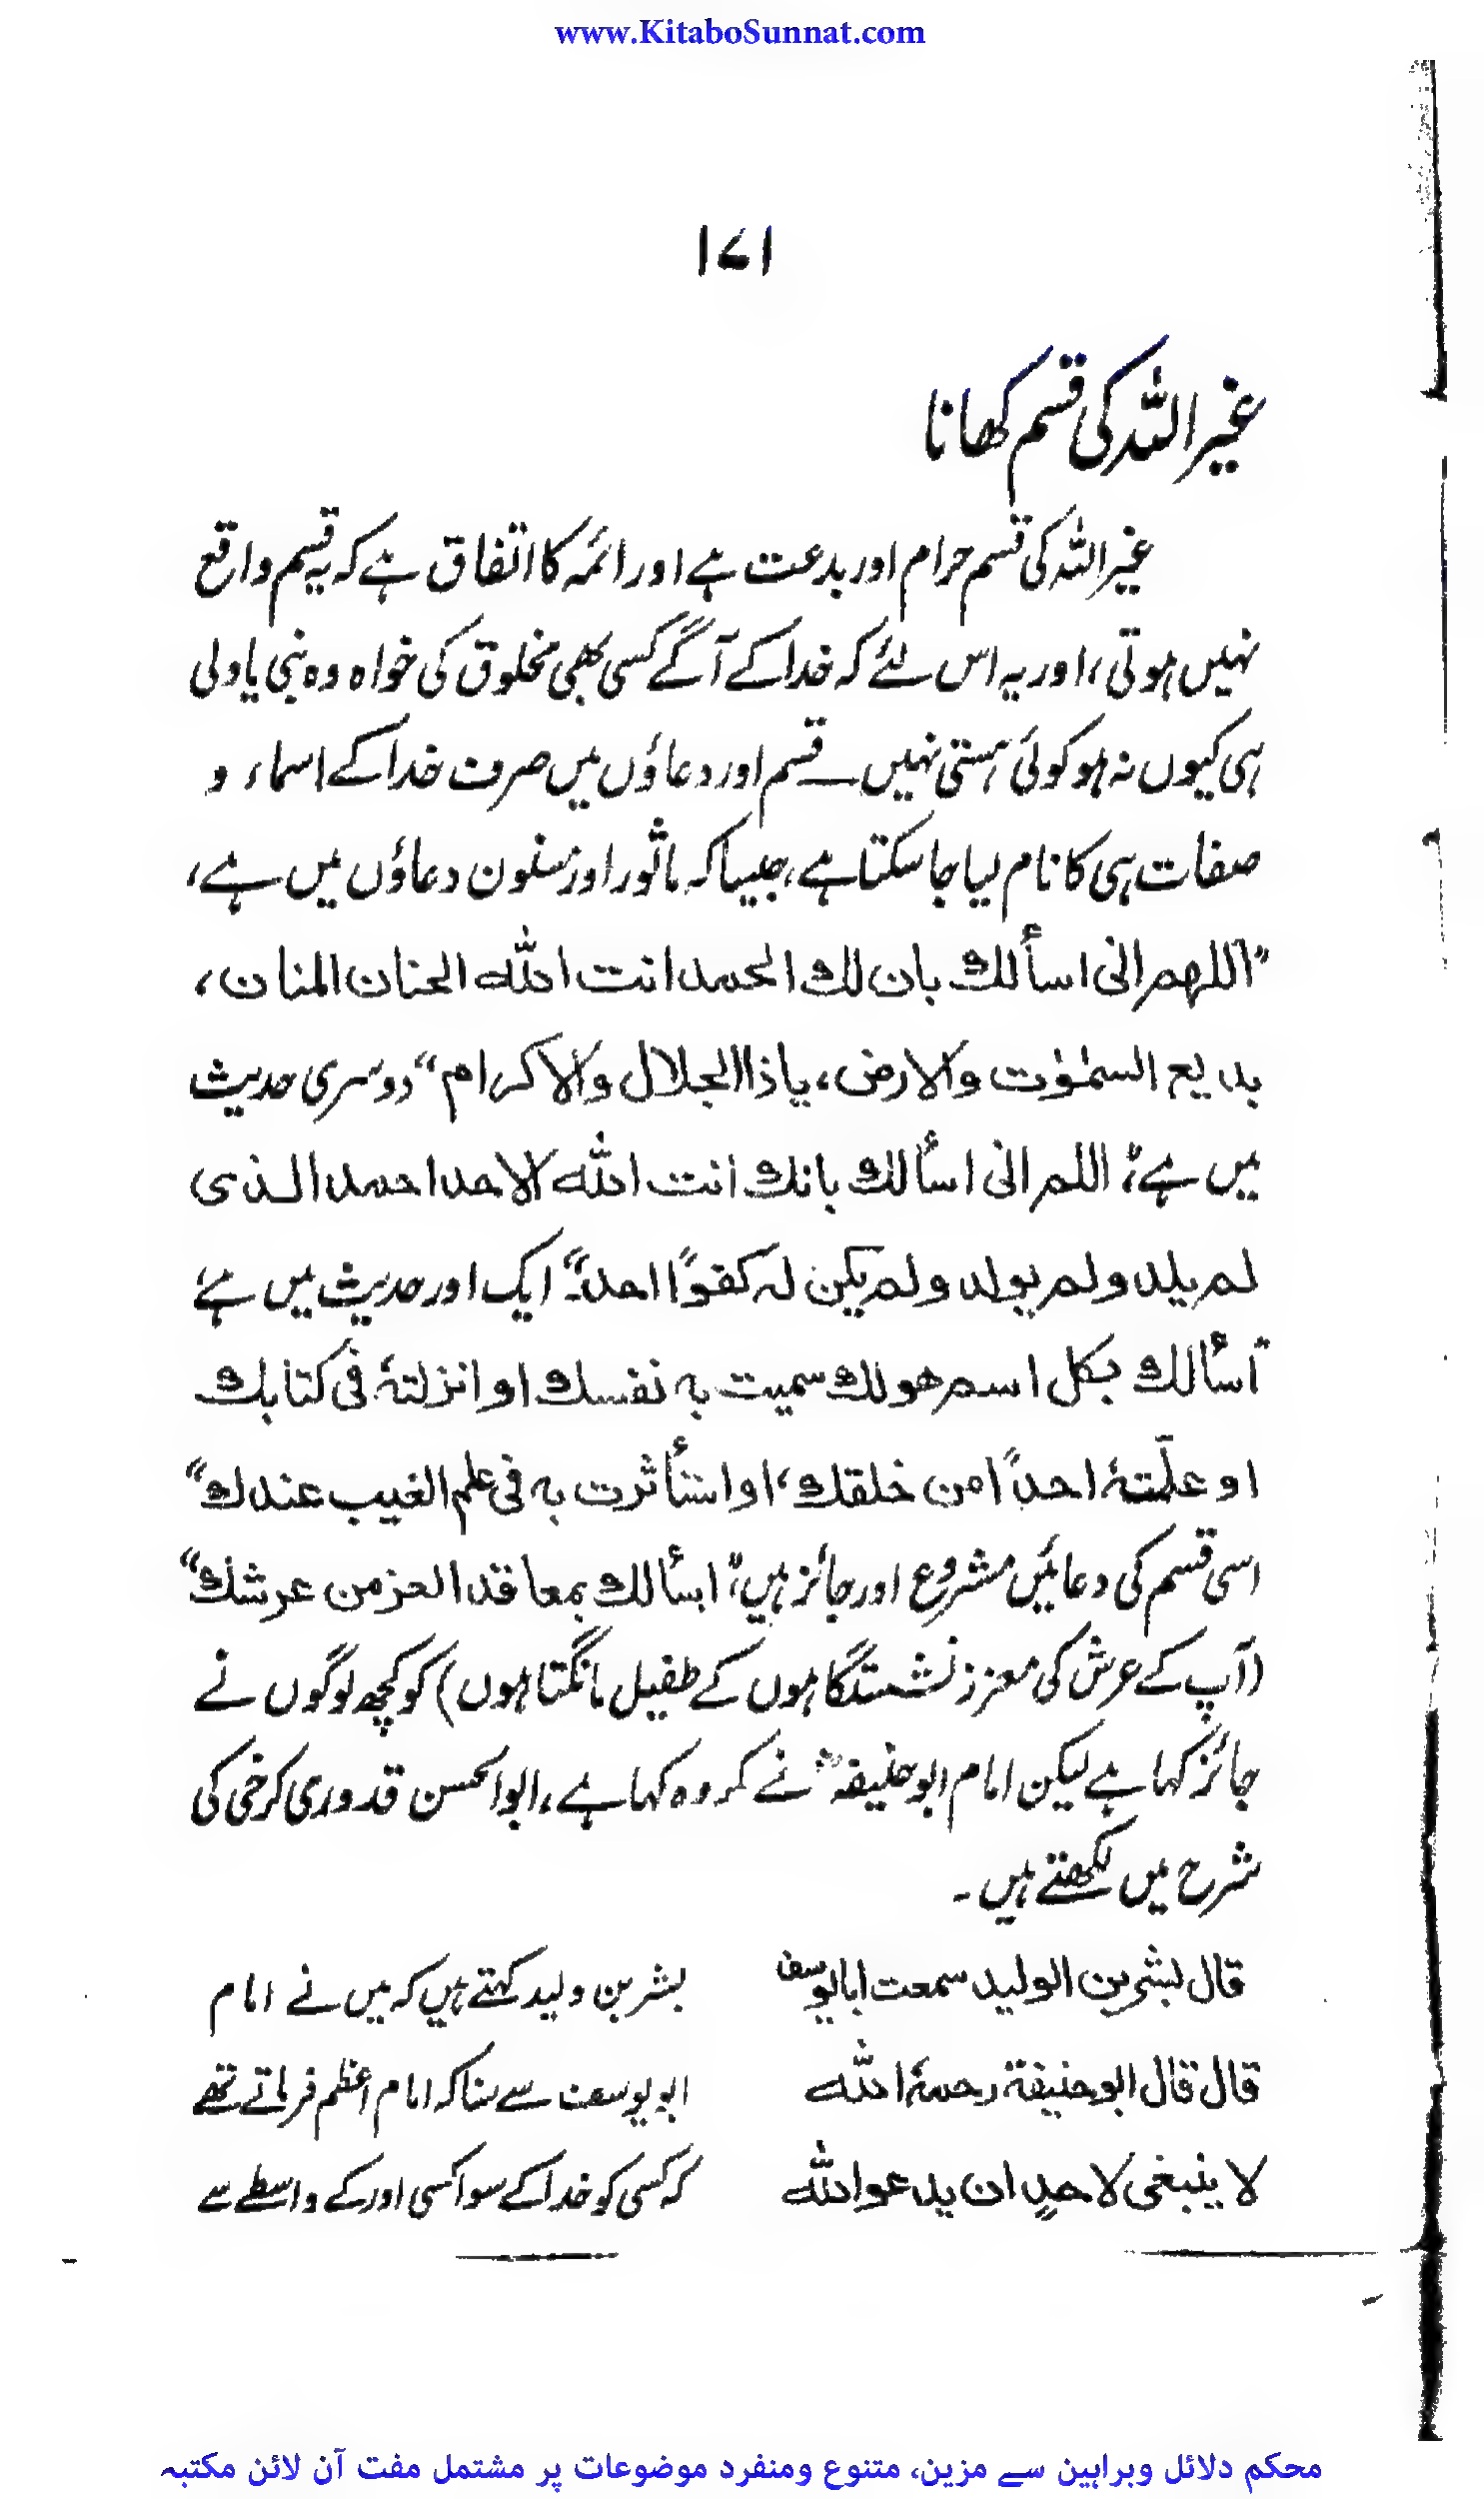 www.KitaboSunnat.com
۱۷۱
غیر اللہ کی قسم کھانا
غیر اللہ کی قسم حرام اور بدعت ہے اور ائمہ کا اتفاق ہے کہ یہ قسم واقع
نہیں ہوتی، اور یہ اس لئے کہ خدا کے آگے کسی بھی مخلوق کی خواہ وہ نبی یا ولی
ہی کیوں نہ ہو کوئی ہستی نہیں ــ قسم اور دعاؤں میں صرف خدا کے اسماء و
صفات ہی کا نام لیا جا سکتا ہے، جیسا کہ ماثور اور مسنون دعاؤں میں ہے،
”اللهم انی اسألك بان لك الحمد انت الله الحنان المنان،
بدیع السمٰوٰت والارض، یا ذا الجلال والاکرام“ دوسری حدیث
میں ہے: ”اللم انی اسألك بانك انت الله الاحد احمد الذی
لم یلد ولم یولد ولم یکن لہ کفوًا احد۔“ ایک اور حدیث میں ہے
”اسألك بکل اسم هو لك سمیت به نفسك او انزلتهٗ فی کتابك
او علّمتهٗ احدًا من خلقك، او استأثرت به فی علم الغیب عندك“
اسی قسم کی دعائیں مشروع اور جائز ہیں: ”اسألك بمعاقد العز من عرشك“
(آپ کے عرش کی معزز نشستگاہوں کے طفیل مانگتا ہوں) کو کچھ لوگوں نے
جائز کہا ہے لیکن امام ابو حنیفہؒ نے مکروہ کہا ہے، ابوالحسن قدوری کرخی کی
شرح میں لکھتے ہیں۔
قال بشر بن الولید سمعت ابا یوسف
قال قال ابو حنیفة رحمهٗ الله
لا ینبغی لاحدٍ ان یدعو الله
بشر بن ولید کہتے ہیں کہ میں نے امام
ابو یوسف سے سنا کہ امام اعظم فرماتے تھے
کہ کسی کو خدا کے سوا کسی اور کے واسطے سے
محکم دلائل وبراہین سے مزین، متنوع ومنفرد موضوعات پر مشتمل مفت آن لائن مکتبہ